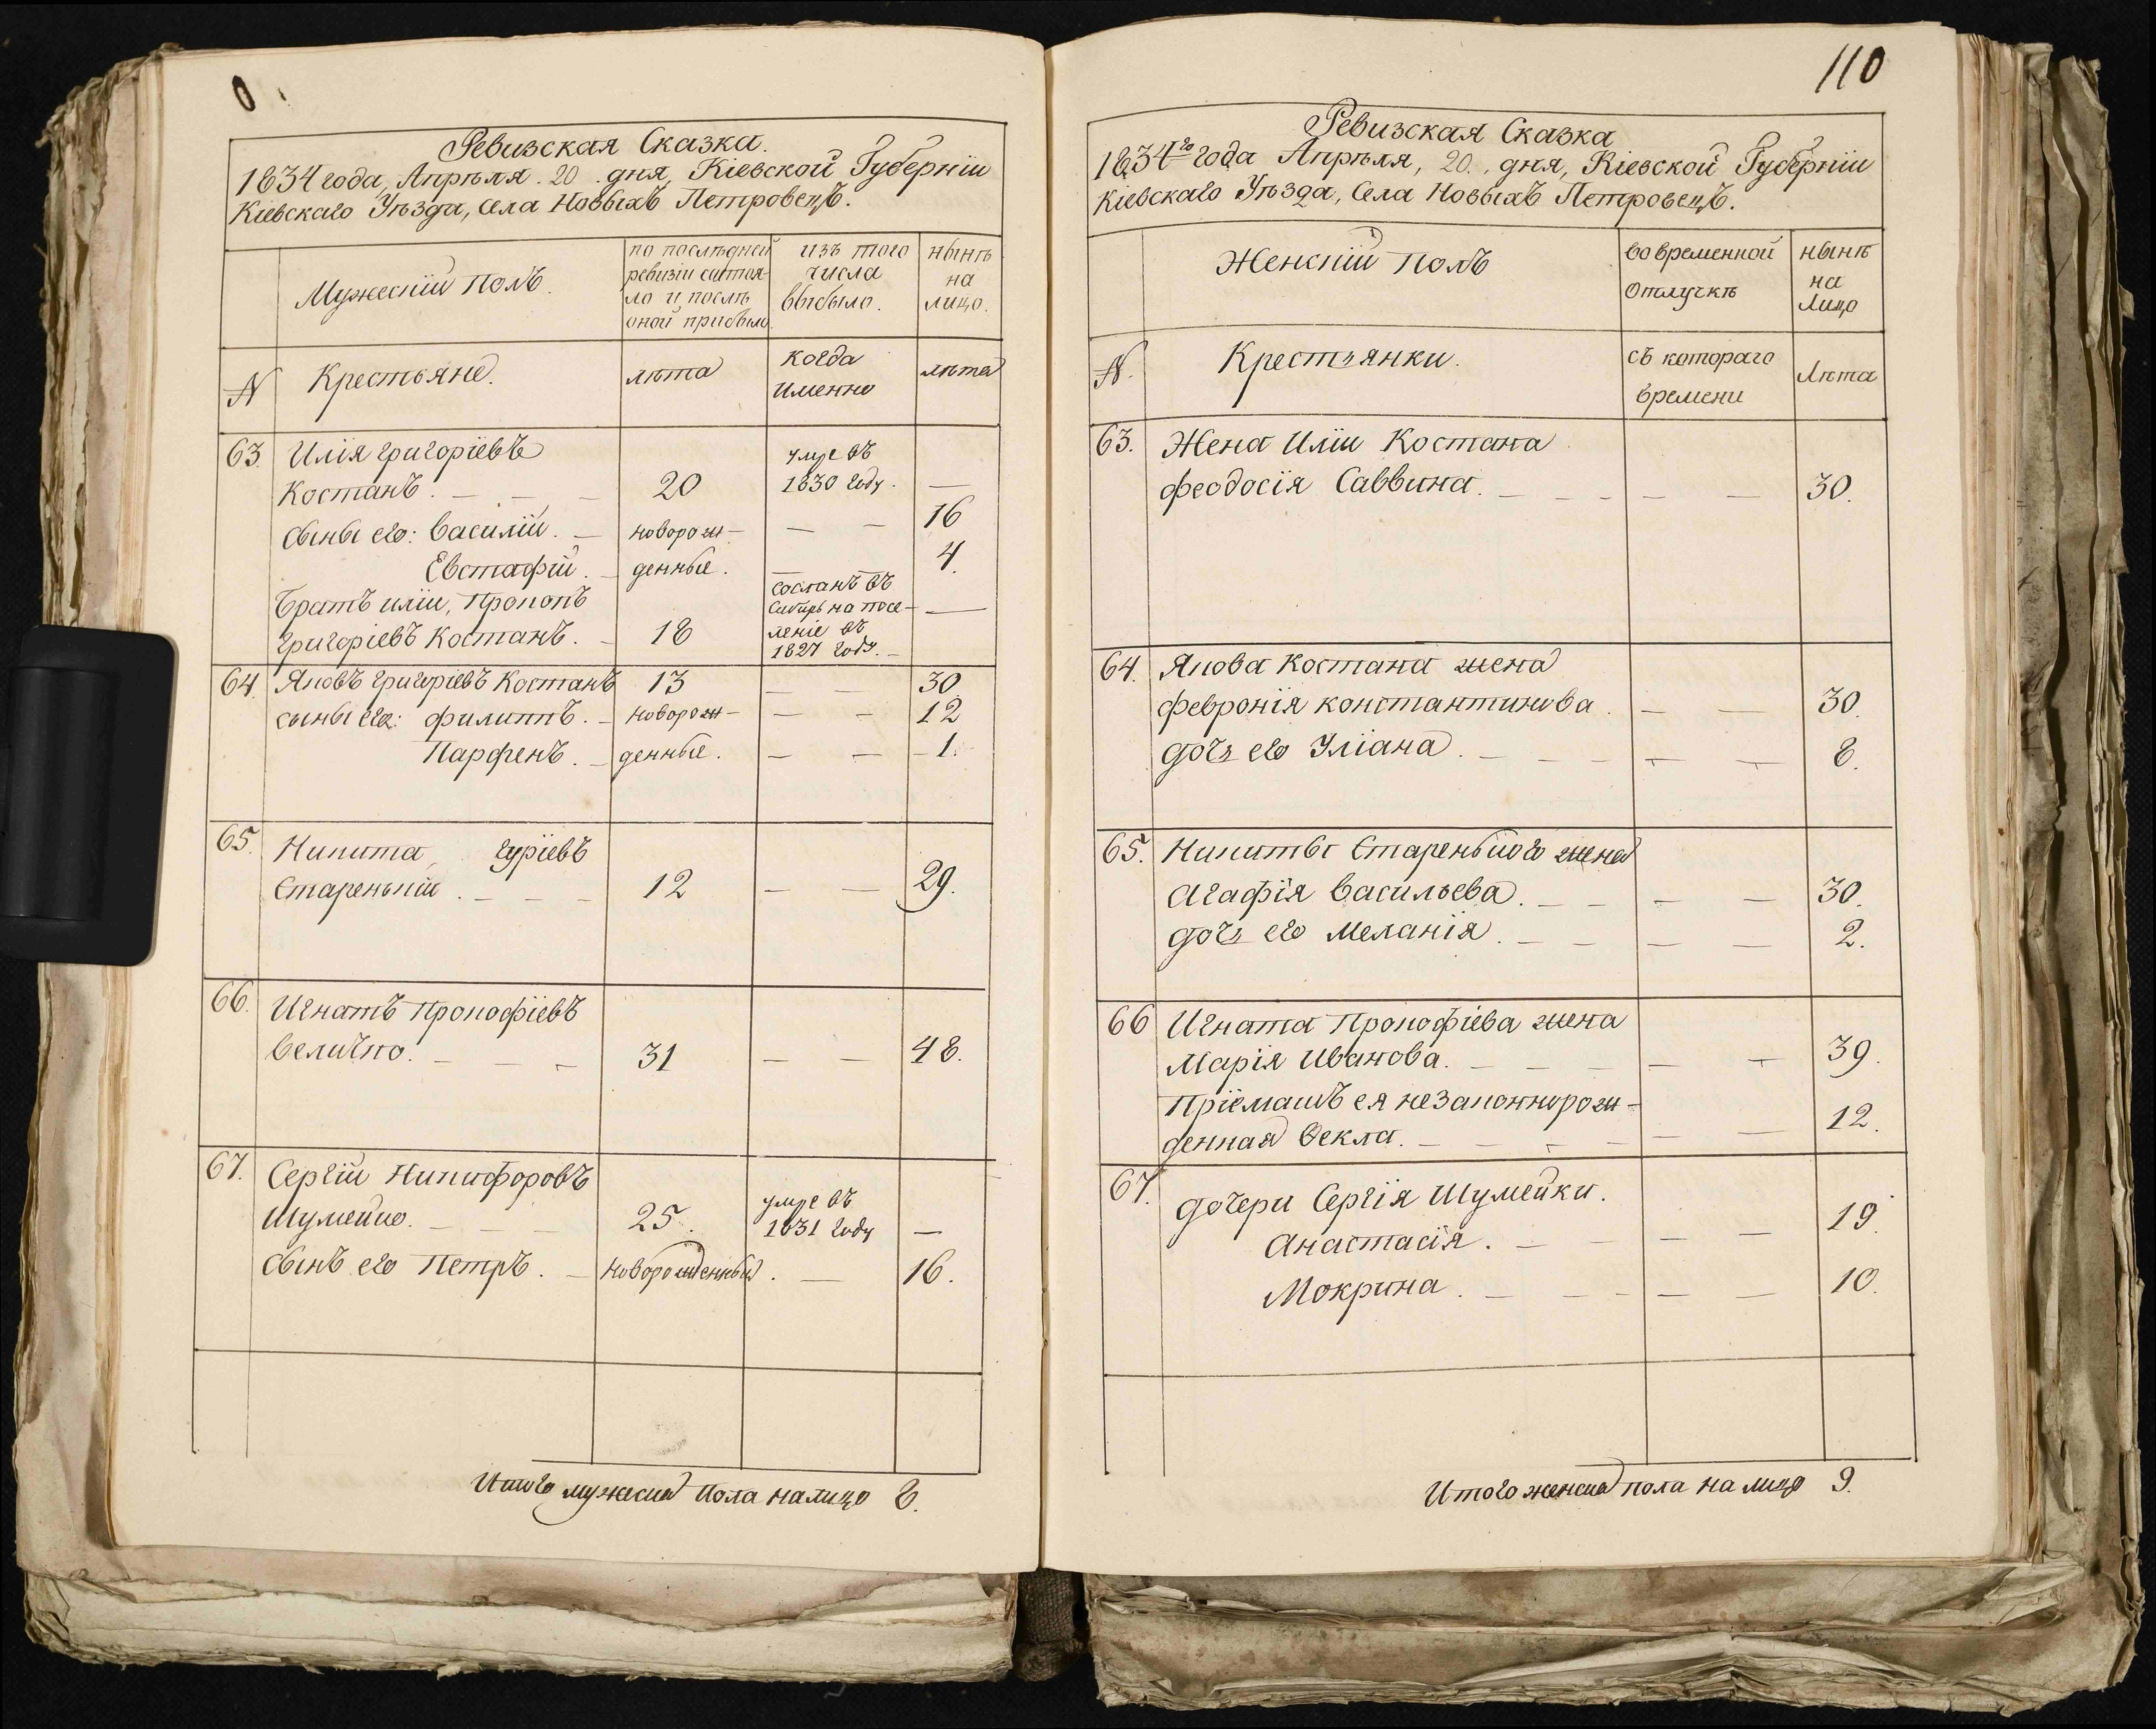 0
Ревизская Сказка.
1834 года, Апрѣля. 20. дня, Кіевской Губерніи
Кіевскаго Уѣзда, села Новыхъ Петровецъ.
Мужескій полъ.
по послѣдней
ревизіи состоя-
ло и послѣ
оной прибыло.
изъ того
числа
выбыло.
нынѣ
на
лицо.
N
Крестьяне.
лѣта
когда
именно
лѣта
63. Илія григоріевъ умре въ
Костанъ. — — — 20 1830 году. —
сыны его: Василій. — новорож- — — 16
Евстафій. — денные. 4.
Братъ иліи, Прокопъ сосланъ въ
Сибирь на посе- —
григоріевъ Костанъ. — 18 леніе въ
1827 году. —
64. Яковъ григоріевъ Костанъ 13 — — 30.
сыны его: филиппъ. — новорож- — — 12
Парфенъ. — денные. — — 1.
65. Никита гуріевъ
Старенькій. — — — 12 — — 29.
66. Игнатъ Прокофіевъ
Величко. — — — 31 — — 48.
67. Сергій Никифоровъ умре въ
Шумейко. — — — 25. 1831 году —
Сынъ его Петръ. — новорожденный. — 16.
Итого мужеска пола на лицо 8.
110
Ревизская Сказка
1834го года Апрѣля, 20., дня, Кіевской Губерніи
Кіевскаго Уѣзда, Села Новыхъ Петровецъ.
Женскій полъ
во временной
отлучкѣ
нынѣ
на
лицо
N.
Крестьянки.
съ котораго
времени
Лѣта
63. Жена Иліи Костана
феодосія Саввина. — — — — — 30.
64. Якова Костана жена
февронія константинова. — — 30.
дочь его Уліана. — — — — — 8.
65. Никиты Старенького жена
Агафія Васильева. — — — — 30.
дочь его Меланія. — — — — 2.
66 Игната Прокофіева жена
Марія Иванова. — — — — — 39.
Пріемашъ ея незаконнорож-
денная Ѳекла. — — — — — — 12.
67. дочери Сергія Шумейки.
Анастасія. — — — — 19.
Мокрина. — — — — — 10.
Итого женска пола на лицо 9.